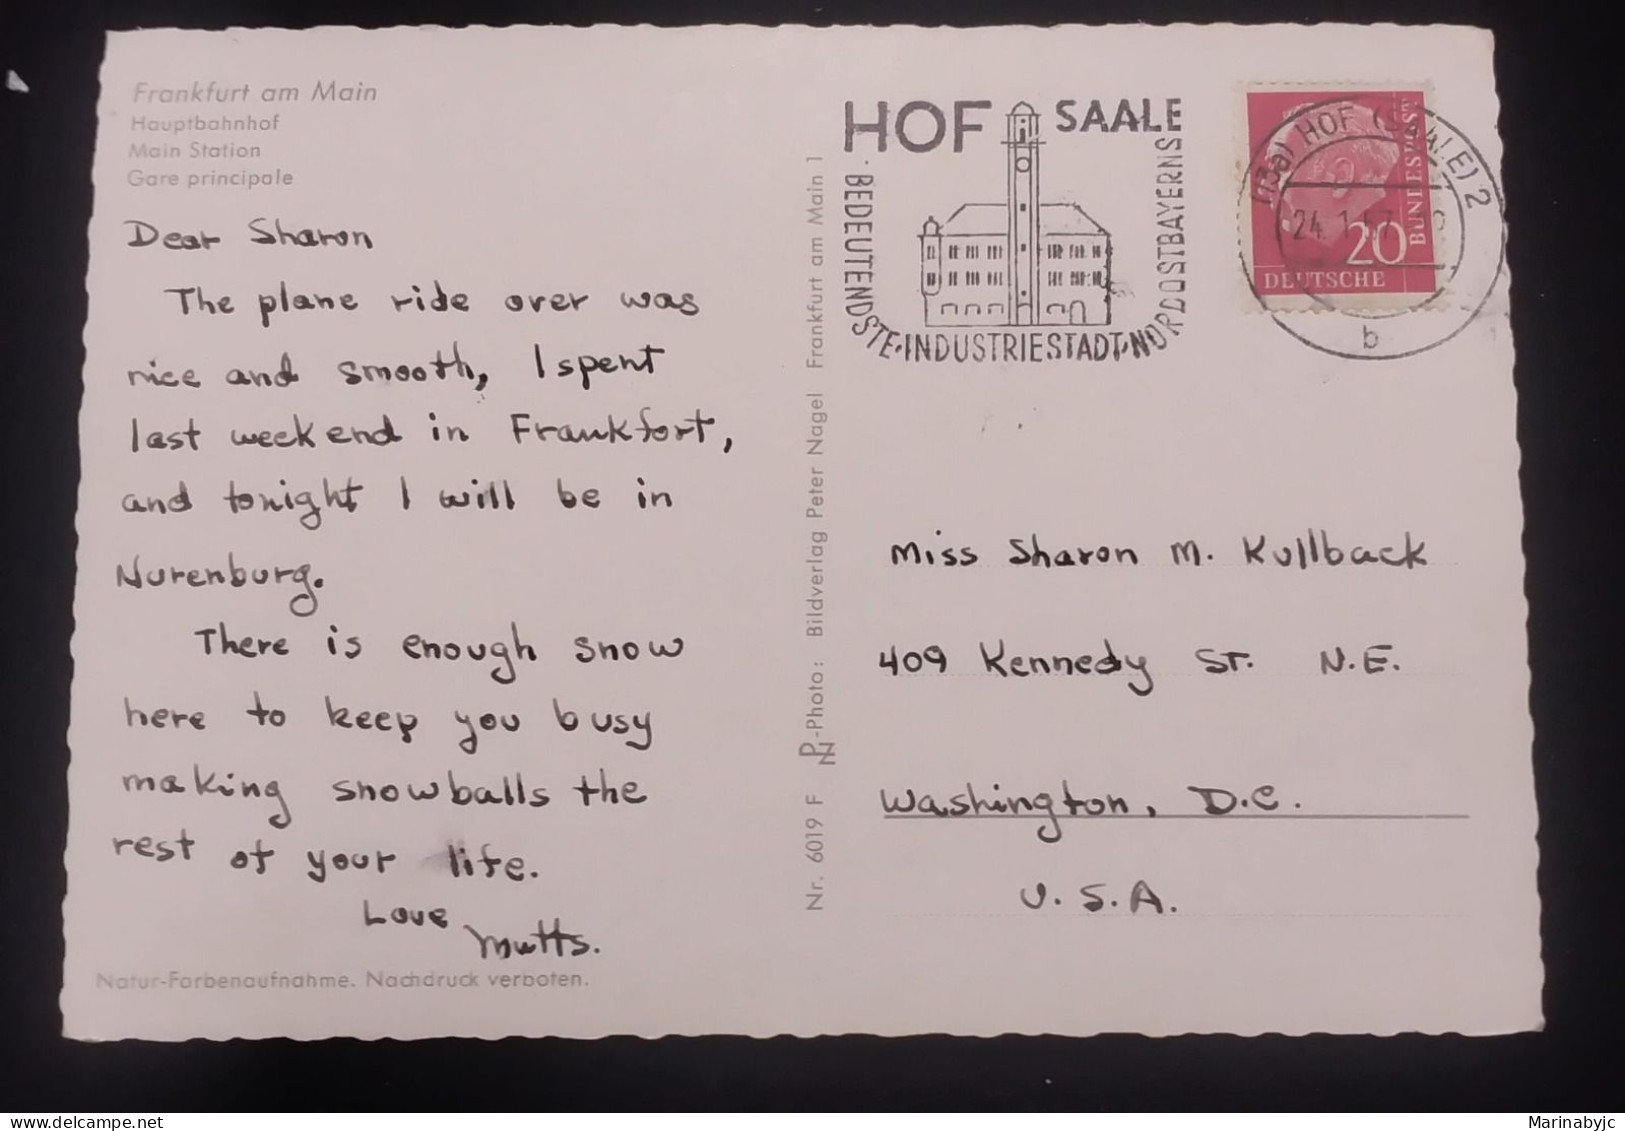 Frankfurt am Main
Hauptbahnhof
Main Station
Gare principale
Dear Sharon
The plane ride over was
nice and smooth, I spent
last weekend in Frankfort,
and tonight I will be in
Nurenburg.
There is enough snow
here to keep you busy
making snowballs the
rest of your life.
Love
Mutts.
Natur-Farbenaufnahme. Nachdruck verboten.
Nr. 6019 F PN-Photo: Bildverlag Peter Nagel Frankfurt am Main 1
HOF SAALE
· BEDEUTENDSTE · INDUSTRIESTADT · NORDOSTBAYERNS
(13a) HOF (SAALE) 2
24. 1. 57
b
20
DEUTSCHE
BUNDESPOST
Miss Sharon M. Kullback
409 Kennedy St. N.E.
Washington, D.C.
U.S.A.
Marinabyjc